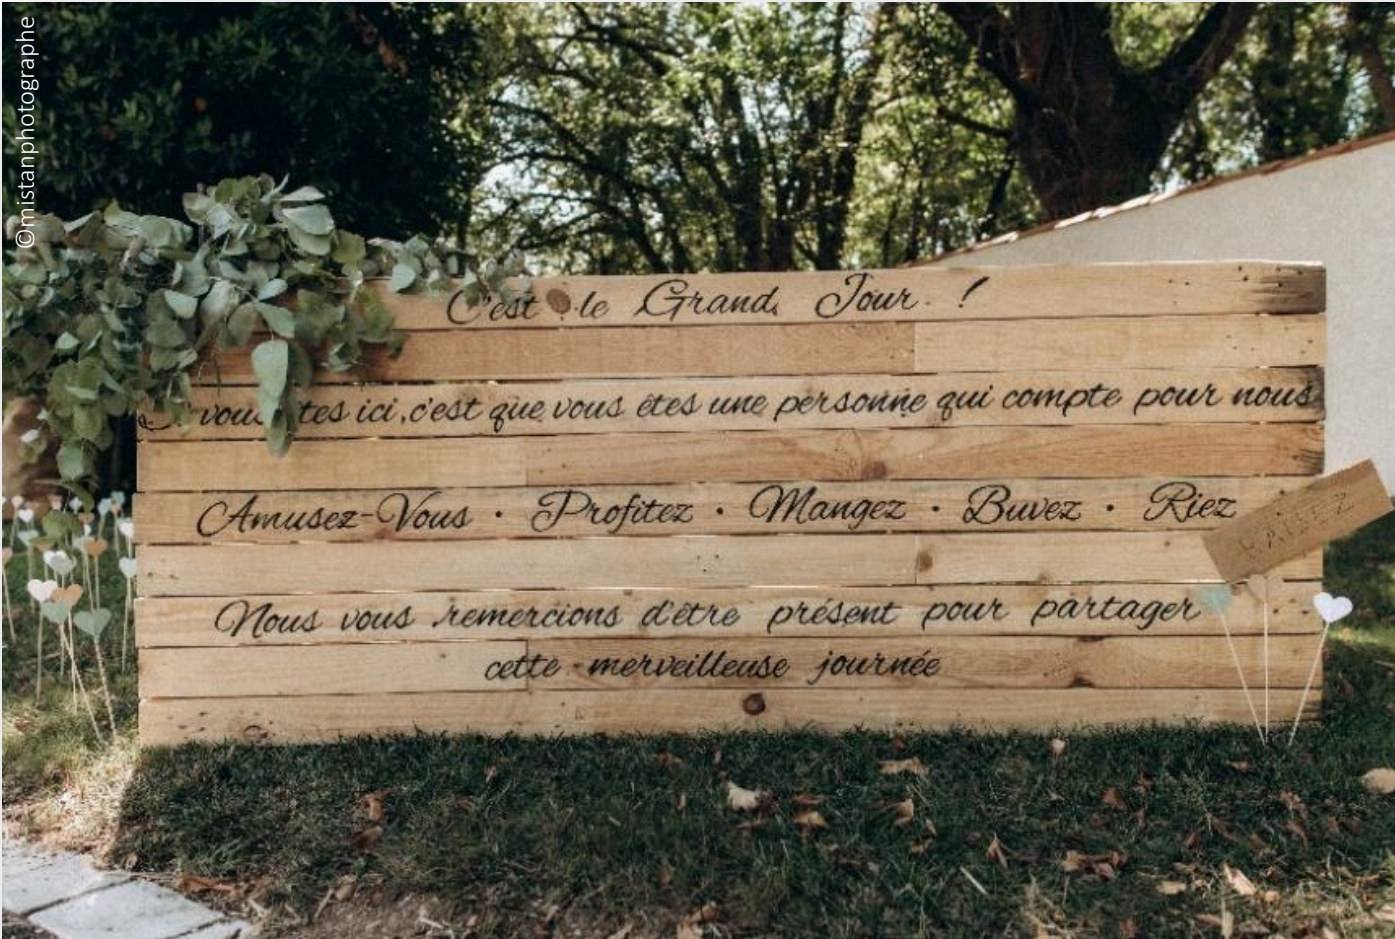 ©mistanphotographe
C'est le Grand Jour !
vous tes ici, c'est que vous êtes une personne qui compte pour nous
Amusez-Vous • Profitez • Mangez • Buvez • Riez
Nous vous remercions d'être présent pour partager
cette merveilleuse journée